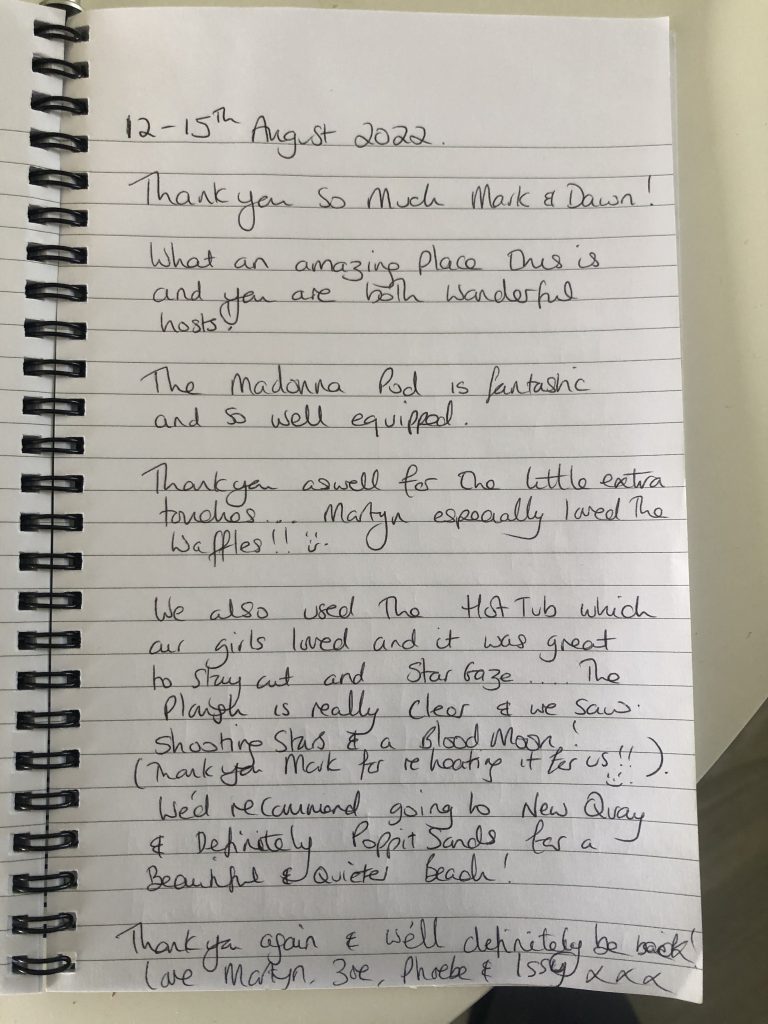 12-15th August 2022.
Thank you so Much Mark & Dawn!
What an amazing place this is
and you are both wonderful
hosts!
The Madonna Pod is fantastic
and so well equipped.
Thank you aswell for the little extra
touches... Martyn especially loved the
Waffles!!
We also used the Hot Tub which
our girls loved and it was great
to stay out and Star Gaze.... The
Plough is really clear & we saw
Shooting Stars & a Blood Moon!
(Thank you Mark for reheating it for us!!).
We'd recommend going to New Quay
& Definitely Poppit Sands for a
Beautiful & Quieter beach!
Thank you again & we'll definitely be back!
Love Martyn, Zoe, Phoebe & Issy xxx